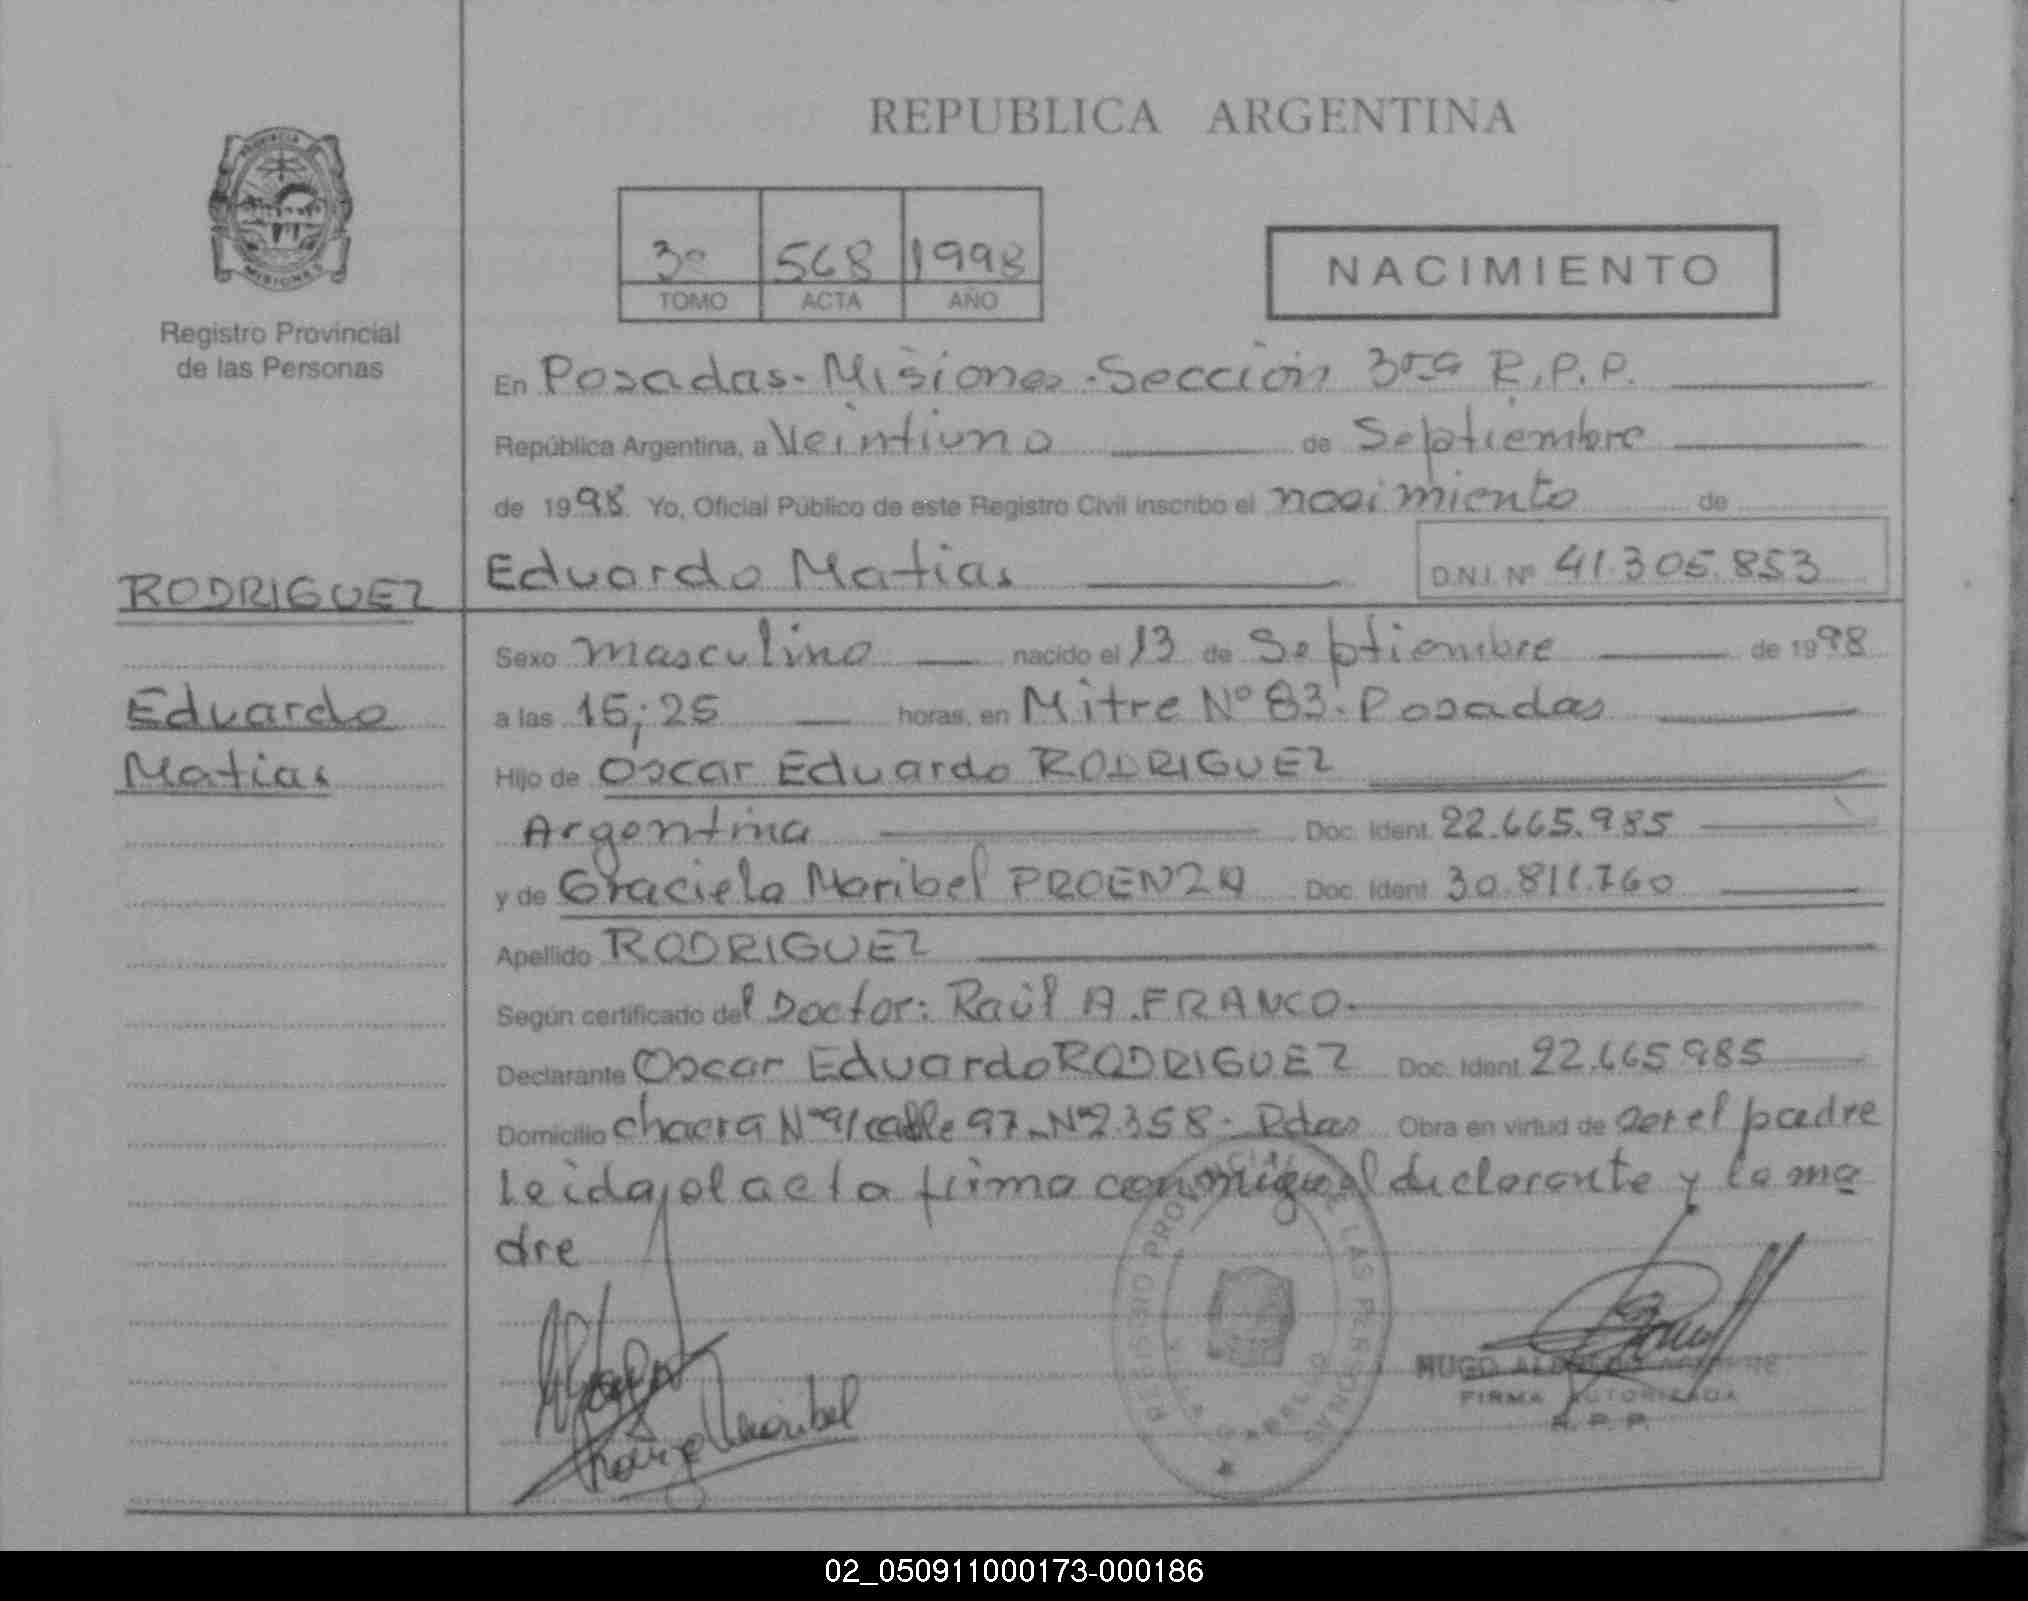 REPUBLICA ARGENTINA
PROVINCIA
MISIONES
Registro Provincial
de las Personas
3º 568 1998
TOMO ACTA AÑO
NACIMIENTO
En Posadas - Misiones - Sección 3ra R.P.P.
República Argentina, a Veintiuno de Septiembre
de 1998 Yo, Oficial Público de este Registro Civil inscribo el nacimiento de
RODRIGUEZ
Eduardo Matias D.N.I. Nº 41.305.853
Sexo masculino nacido el 13 de Septiembre de 1998
Eduardo
a las 15;25 horas, en Mitre Nº 83 - Posadas
Matias
Hijo de Oscar Eduardo RODRIGUEZ
Argentina Doc. Ident. 22.665.985
y de Graciela Maribel PROENZA Doc. Ident. 30.811.760
Apellido RODRIGUEZ
Según certificado del Doctor: Raúl A. FRANCO.
Declarante Oscar Eduardo RODRIGUEZ Doc. Ident. 22.665.985
Domicilio chacra Nº 91 calle 97 - Nº 2358 - Pdas Obra en virtud de ser el padre
Leida el acta firma conmigo el declarante y la ma
dre
REGISTRO PROVINCIAL DE LAS PERSONAS
Maribel
HUGO
FIRMA AUTORIZADA
R. P. P.
02_050911000173-000186